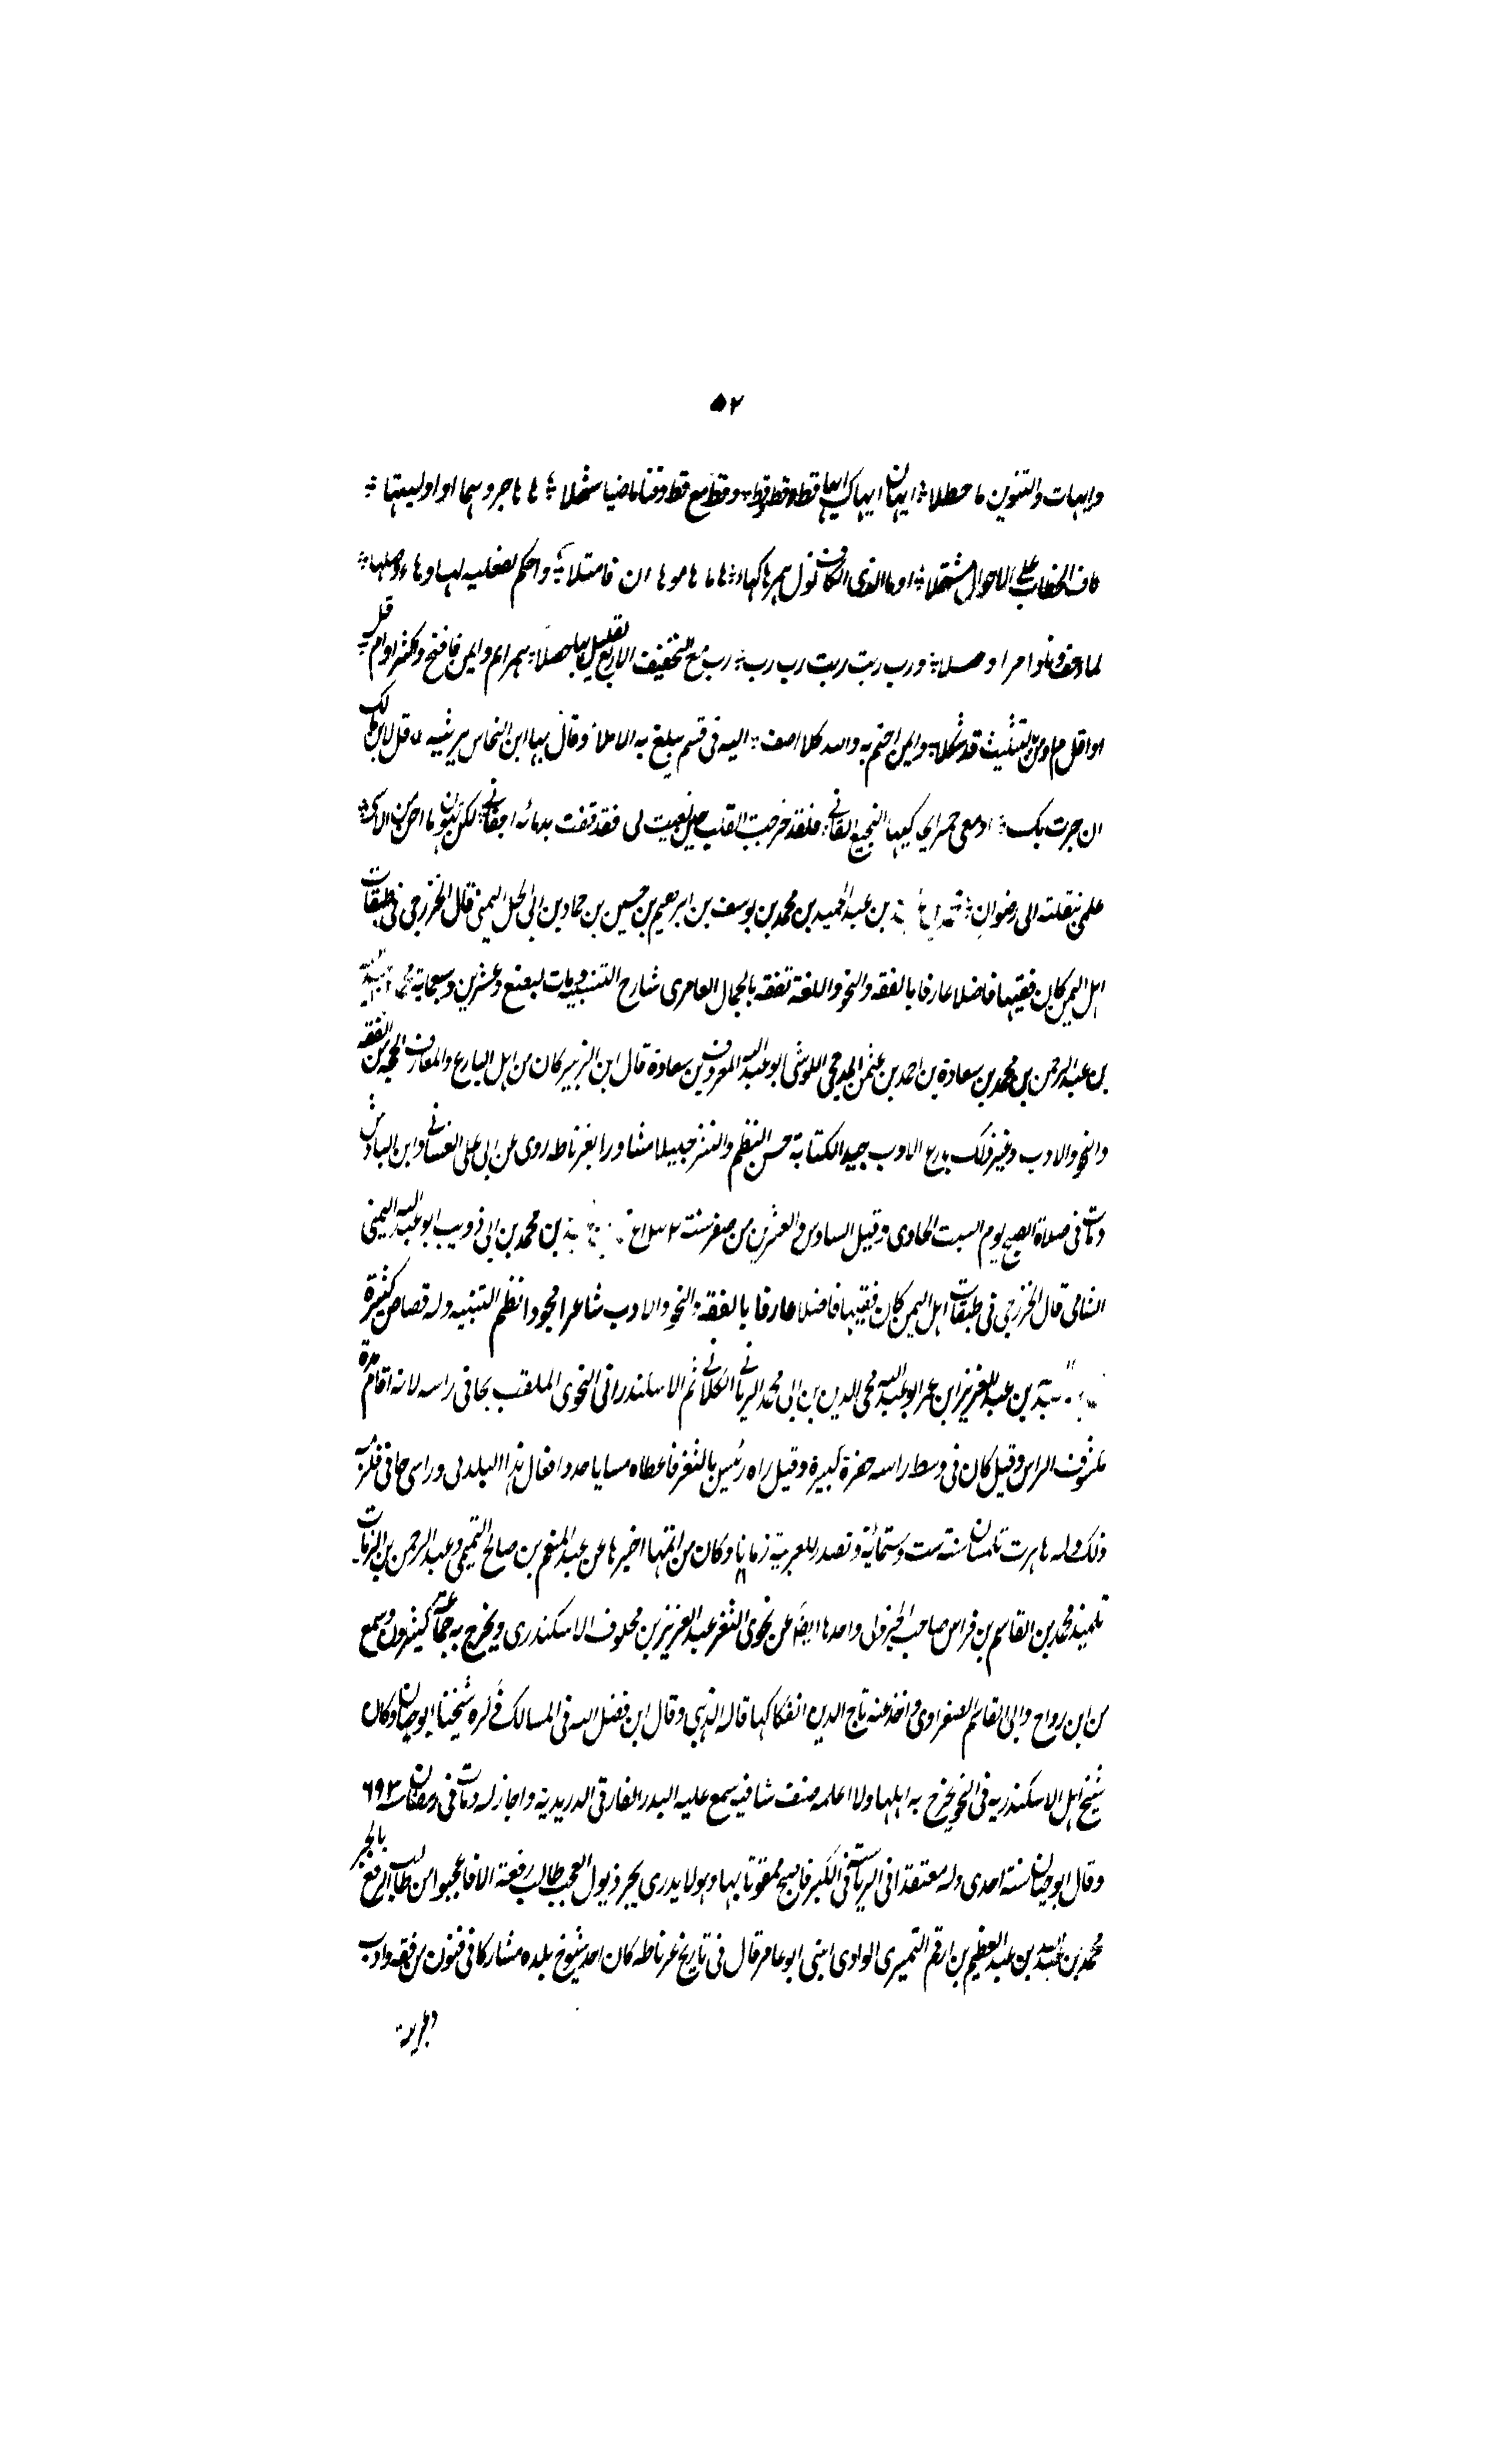 ٥٢
وايهات والتنوين ما حطلا ايهان ايهاك ايها قط وقط وقط مع قط وقتا ماضيا شملا ها ها جر وسهما او اوليتها
كاف الخطاب على الاحوال مشتملا او ما الذى الكاف نول همزها كهاء ها ما هاموها ان فامتثلا واحكم لفعليه لها وهاء وصلها
لما وصفو نلوا مرا وصلا ورب ربت ربت رب رب رب مع التخفيف الاربع تقليل بها حصلا همز ايم وايمن فافتح واكسر او ام قل
او اقل م او من بتثليث قد شكلا وايمن اختم به والله كلا اضف اليه فى قسم يبلغ به الاملا وقال بها ابن النحاس يرثيه قل لابن مالك
ان جرت بك ادمعى حمرا يحكيها النجيع القانى فلقد جرحت القلب حين نعيت لى فقد قفت بدمائه اجفانى لكن يهون ما اجن من الاسى
علمى بنقلته الى رضوان بن عبد الحميد بن محمد بن يوسف بن ابرهيم بن حسين بن حماد بن ابى الخل اليمنى قال الخزرجى فى طبقات
اهل اليمن كان فقيها فاضلا عارفا بالفقه والنحو واللغة تفقه بالجمال العامرى شارح التنبيه ومات لبضع وعشرين وسبعماية
بن عبد الرحمن بن محمد بن سعادة بن احمد بن عثمن المدحجى اللوشى ابو عبد الله المعروف بن سعادة قال ابن الزبير كان من اهل البارع والمعارف الجمة من الفقه
والنحو والادب وغير ذلك بارع الادب جيد الكتابة حسن النظم والنثر جبيلا مشاورا بغرناطه روى عن ابى على الغسانى وابن الباذش
ومات فى صلاة الصبح يوم السبت الحادى وقيل السادس والعشرين من صفر سنت بن محمد بن ابى ذويب ابو عبد الله اليمنى
الشامى قال الخزرجى فى طبقات اهل اليمن كان فقيها فاضلا عارفا بالفقه والنحو والادب شاعرا مجودا نظم التنبيه وله قصاص كثيرة
بن عبد العزيز ابن عمر ابو عبد الله محى الدين بن ابى محمد الزناتى الكلانى ثم الاسلندرانى النحوى الملقب بحافى راسه لانه اقام مدة
مكشوف الراس وقيل كان فى وسط راسه حفرة كبيرة وقيل راه رئيس بالثغر فاعطاه ميسايا صدوا فقال هذا البلدنى وراسى حافى فلزمه
ذلك ولد بتاهرت تلمسان سنة ست وستمائة وتصدر للعربية زمانا وكان من ائمتها اخبرها عن عبد المنعم بن صالح التيمى وعبد الرحمن بن الزيات
تلميذ محمد بن القاسم بن فراس صاحب الجزولى واحدها ايضا عن نحوى الثغر عبد العزيز بن مخلوف الاسكندرى ويخرج به جماعة كثيرون وسمع
من ابن رواح وابى القاسم الصفراوى واخذ عنه تاج الدين الفكا كها قاله الذهبى وقال ابن فضل الله فى المسالك ذكره شيخنا ابو حيان وكان
شيخ اهل الاسكندريه فى النحو يخرج به اهلها ولا اعلمه صنف شافيه سمع عليه البدر الفارقى الدريدية واجاز له ومات فى رمضان ٦٩٣
وقال ابو حيان سنة احدى وله معتقدا فى الرياسة فى الكبر فاصبح ممقوتا بها وهو لا يدرى يجر ذيول العجب طالب رفعة الا فاعجبوا من طالب الرفع بالجر
محمد بن عبد الله بن عبد العظيم بن ارقم النميرى الوادى اشى ابو عامر قال فى تاريخ غرناطه كان احد شيوخ بلده مشاركا فى فنون من فقه وادب
وعربية